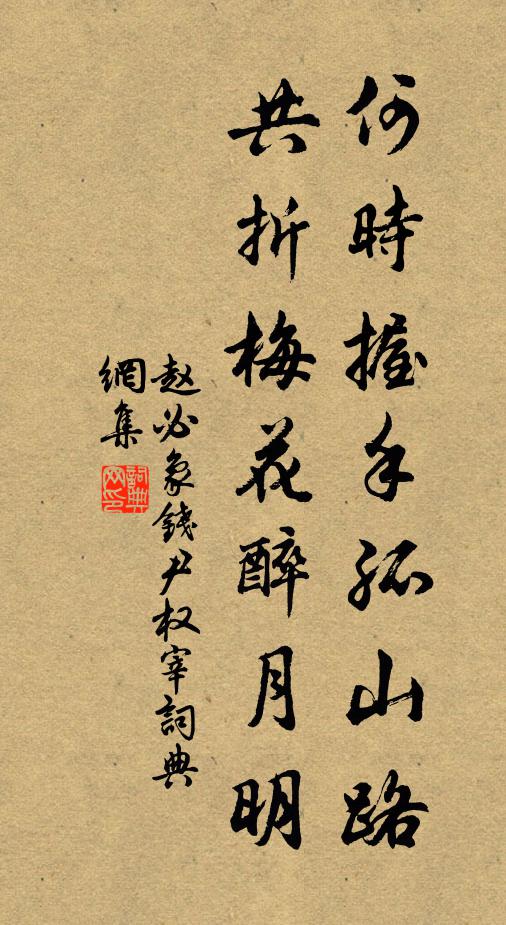 何時握手孤山路
共折梅花醉月明
赵必象錢尹权宰詞典
網集
詞典
网印